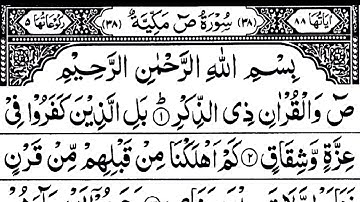 اٰيَاتُهَا ٨٨ (٣٨) سُوْرَةُ صٓ مَكِّيَّةٌ (٣٨) رُكُوْعَاتُهَا ٥
بِسْمِ اللّٰهِ الرَّحْمٰنِ الرَّحِيْمِ
صٓ وَالْقُرْاٰنِ ذِى الذِّكْرِ ۱ بَلِ الَّذِيْنَ كَفَرُوْا فِىْ
عِزَّةٍ وَّشِقَاقٍ ۲ كَمْ اَهْلَكْنَا مِنْ قَبْلِهِمْ مِّنْ قَرْنٍ